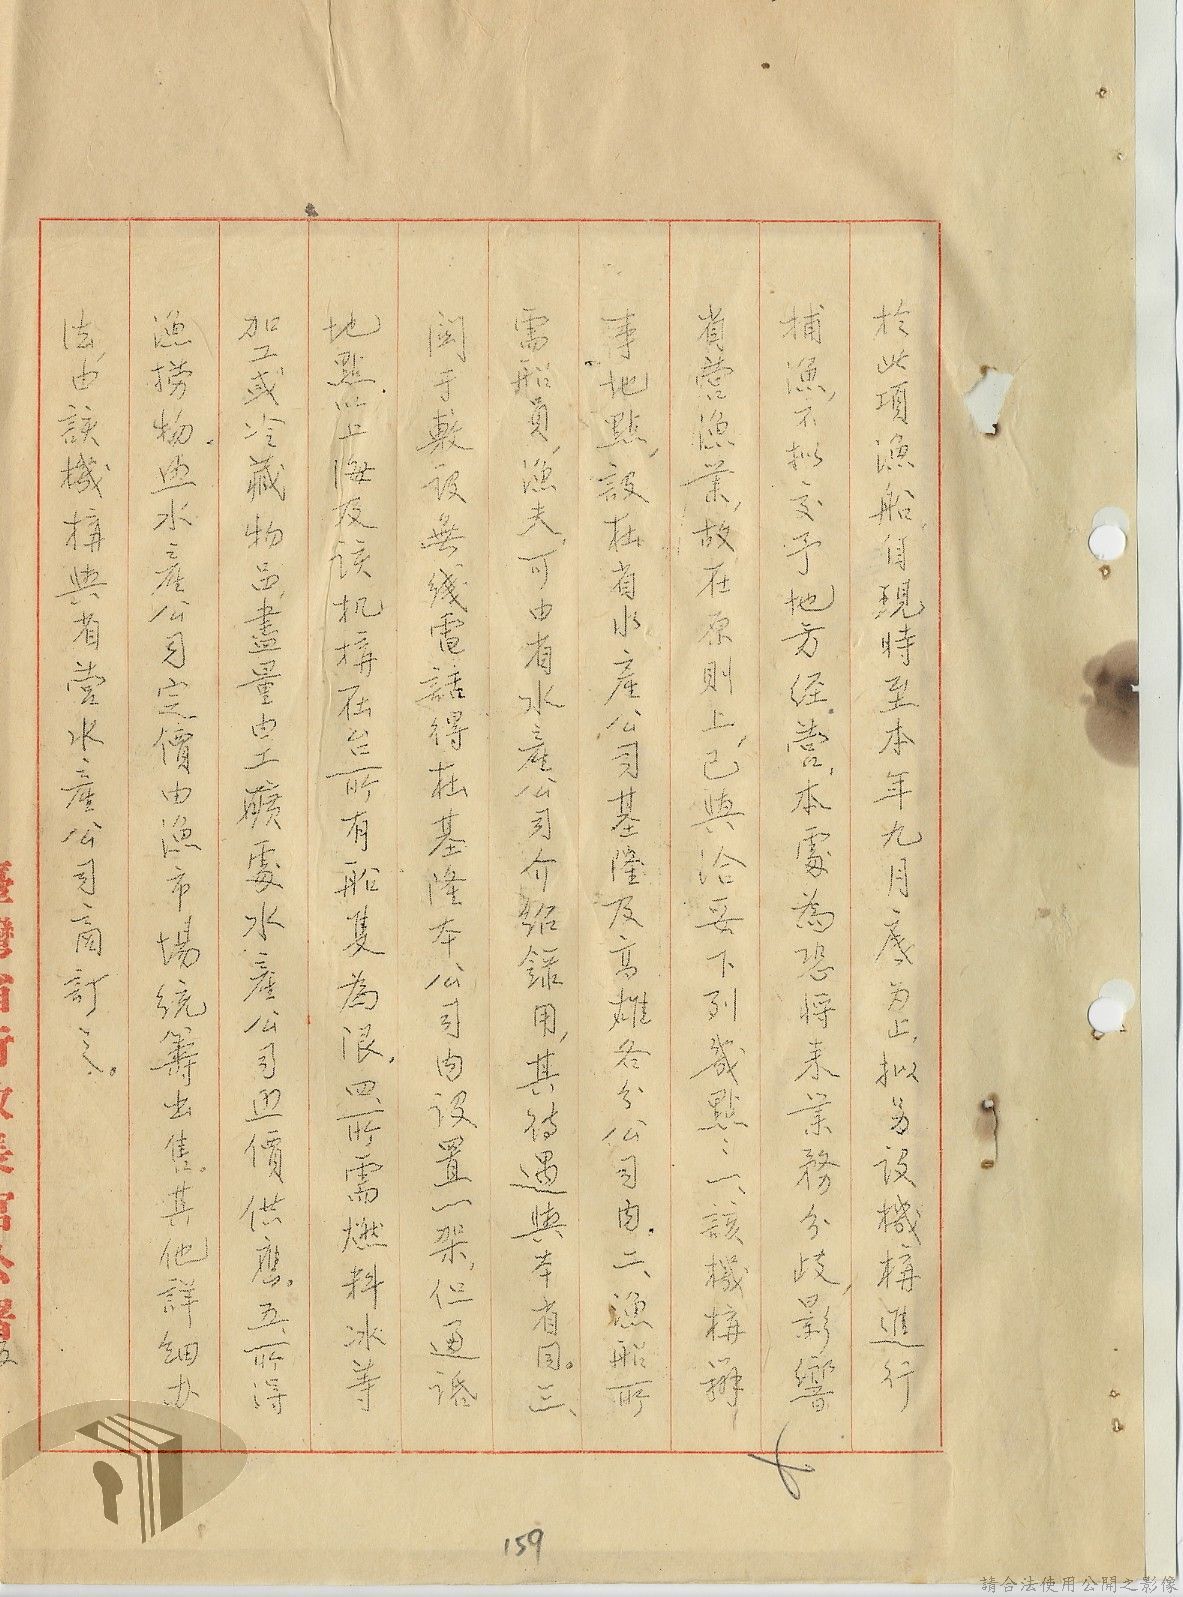 於此項漁船，自現時至本年九月底為止，拟另設機構進行
捕漁，不拟交予地方经营，本處為恐將来業務分歧，影響
省营漁業，故在原則上，已與洽妥下列幾點：一、該機構辦
事地點，設在省水產公司基隆及高雄各分公司内。二、漁船所
需船員，漁夫，可由省水產公司介绍錄用，其待遇與本省同。三、
関于敷設無线電話得在基隆本公司内设置一架，但通話
地點以上海及该机構在台所有船隻為限。四、所需燃料冰等
加工或冷藏物品，盡量由工礦處水產公司照價供應。五、所得
漁撈物照水產公司定價由漁市場統籌出售。其他詳細办
法，由該機構與省营水產公司商訂之。
臺灣省行政長官公署
159
請合法使用公開之影像